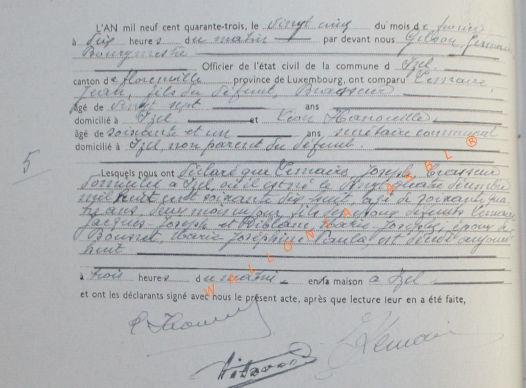 L'AN mil neuf cent quarante-trois, le vingt cinq du mois de février
à dix heures du matin par devant nous Gilson, Fernand
Bourgmestre
Officier de l'état civil de la commune d Izel
canton de Florenville province de Luxembourg, ont comparu Lemaire
Jean, fils du défunt, Brasseur
âgé de vingt sept ans
domicilié à Izel et Léon
âgé de soixante et un ans secrétaire communal
domicilié à Izel, non parent du défunt.
5
Lesquels nous ont déclaré que Lemaire, Joseph, Brasseur
domicilié à Izel, où il est né le vingt quatre
mil huit cent soixante dix huit, âgé de soixante quatre
ans, deux mois un jour, fils des époux défunts Lemaire
Jacques Joseph et Marie époux de
Marie Joséphine Paula est décédé aujourd'
hui
à trois heures du matin en sa maison à Izel
et ont les déclarants signé avec nous le présent acte, après que lecture leur en a été faite,
J Lemaire
WALLONIA ASBL ®